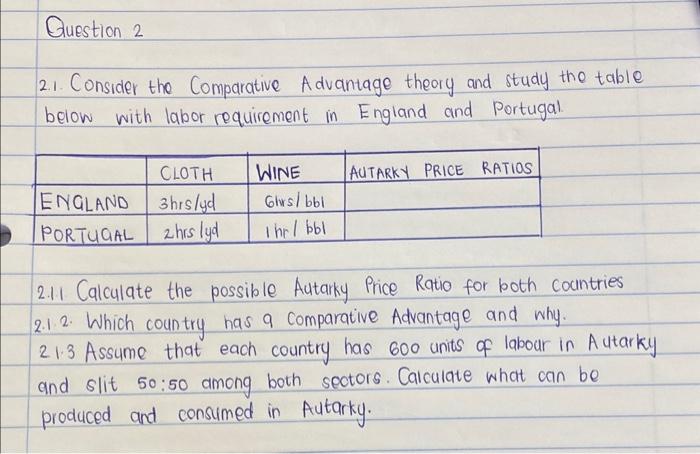 Question 2
2.1. Consider the Comparative Advantage theory and study the table
below with labor requirement in England and Portugal.
CLOTH WINE AUTARKY PRICE RATIOS
ENGLAND 3hrs/yd 6hrs/bbl
PORTUGAL 2hrs/yd 1hr/bbl
2.1.1 Calculate the possible Autarky Price Ratio for both countries
2.1.2. Which country has a Comparative Advantage and why.
2.1.3 Assume that each country has 600 units of labour in Autarky
and slit 50:50 among both sectors. Calculate what can be
produced and consumed in Autarky.